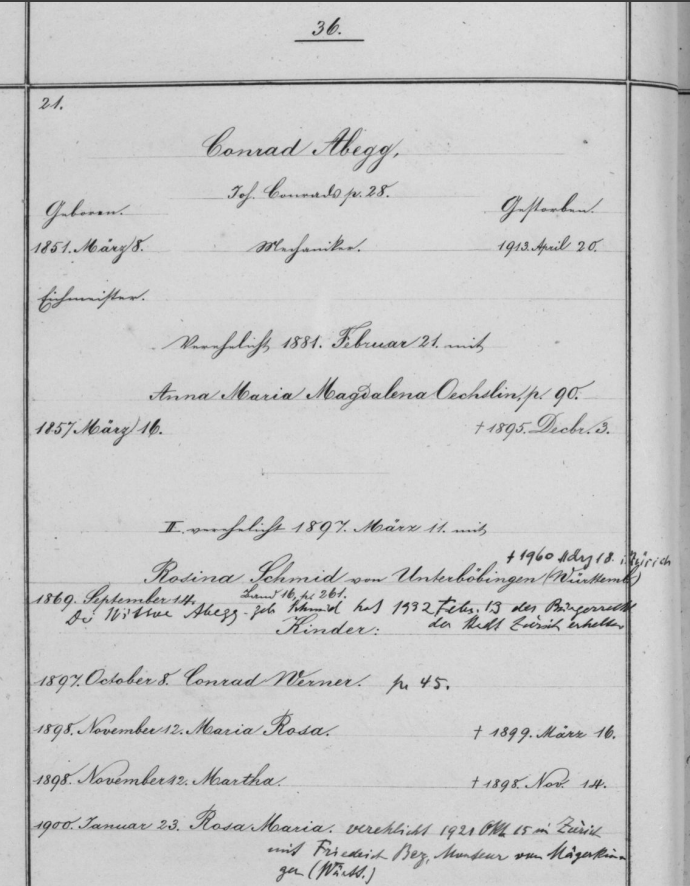 36.
21.
Conrad Abegg,
Joh. Conrads p. 28.
Geboren. Gestorben.
1851. März 8. Mechaniker. 1913. April 20.
Eichmeister.
Verehelicht 1881. Februar 21. mit
Anna Maria Magdalena Oechslin, p. 90.
1857 März 16. † 1895. Decbr. 3.
II. verehelicht 1897. März 11. mit
† 1960 18. i. Zürich
Rosina Schmid von Unterböbingen (Württemb.)
1869. September 14. Band 16, p. 261.
Die Witwe Abegg-geb. Schmid hat 1932 Febr. 13 das Bürgerrecht
der Stadt Zürich erhalten
Kinder:
1897. October 8. Conrad Werner. p. 45.
1898. November 12. Maria Rosa. † 1899. März 16.
1898. November 12. Martha. † 1898. Nov. 14.
1900. Januar 23. Rosa Maria. verehlicht 1921 Okt. 15 in Zürich
mit Friedrich Bez, Monteur von Mägerkin
gen (Württ.)